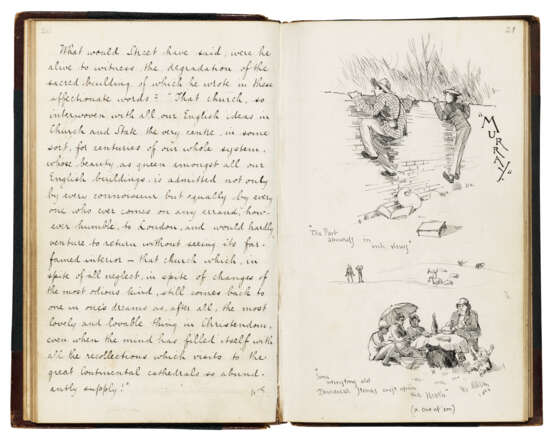 20
What would Street have said, were he
alive to witness the degradation of the
sacred building of which he wrote in these
affectionate words? "That church, so
interwoven with all our English ideas in
Church and State the very centre, in some
sort, for centuries of our whole system,
whose beauty, as queen amongst all our
English buildings, is admitted not only
by every connoisseur but equally by every
one who ever comes on any errand, how-
ever humble, to London, and would hardly
venture to return without seeing its far-
famed interior – that church which, in
spite of all neglect, in spite of changes of
the most odious kind, still comes back to
one in one's dreams as, after all, the most
lovely and lovable thing in Christendom,
even when the mind has filled itself with
all the recollections which visits to the
great Continental cathedrals so abund-
antly supply!"
21
"MURRAY."
"The Port
abounds in
such views"
"Some
interesting old
Memorial Stones
the Hills"
(2 out of 200)